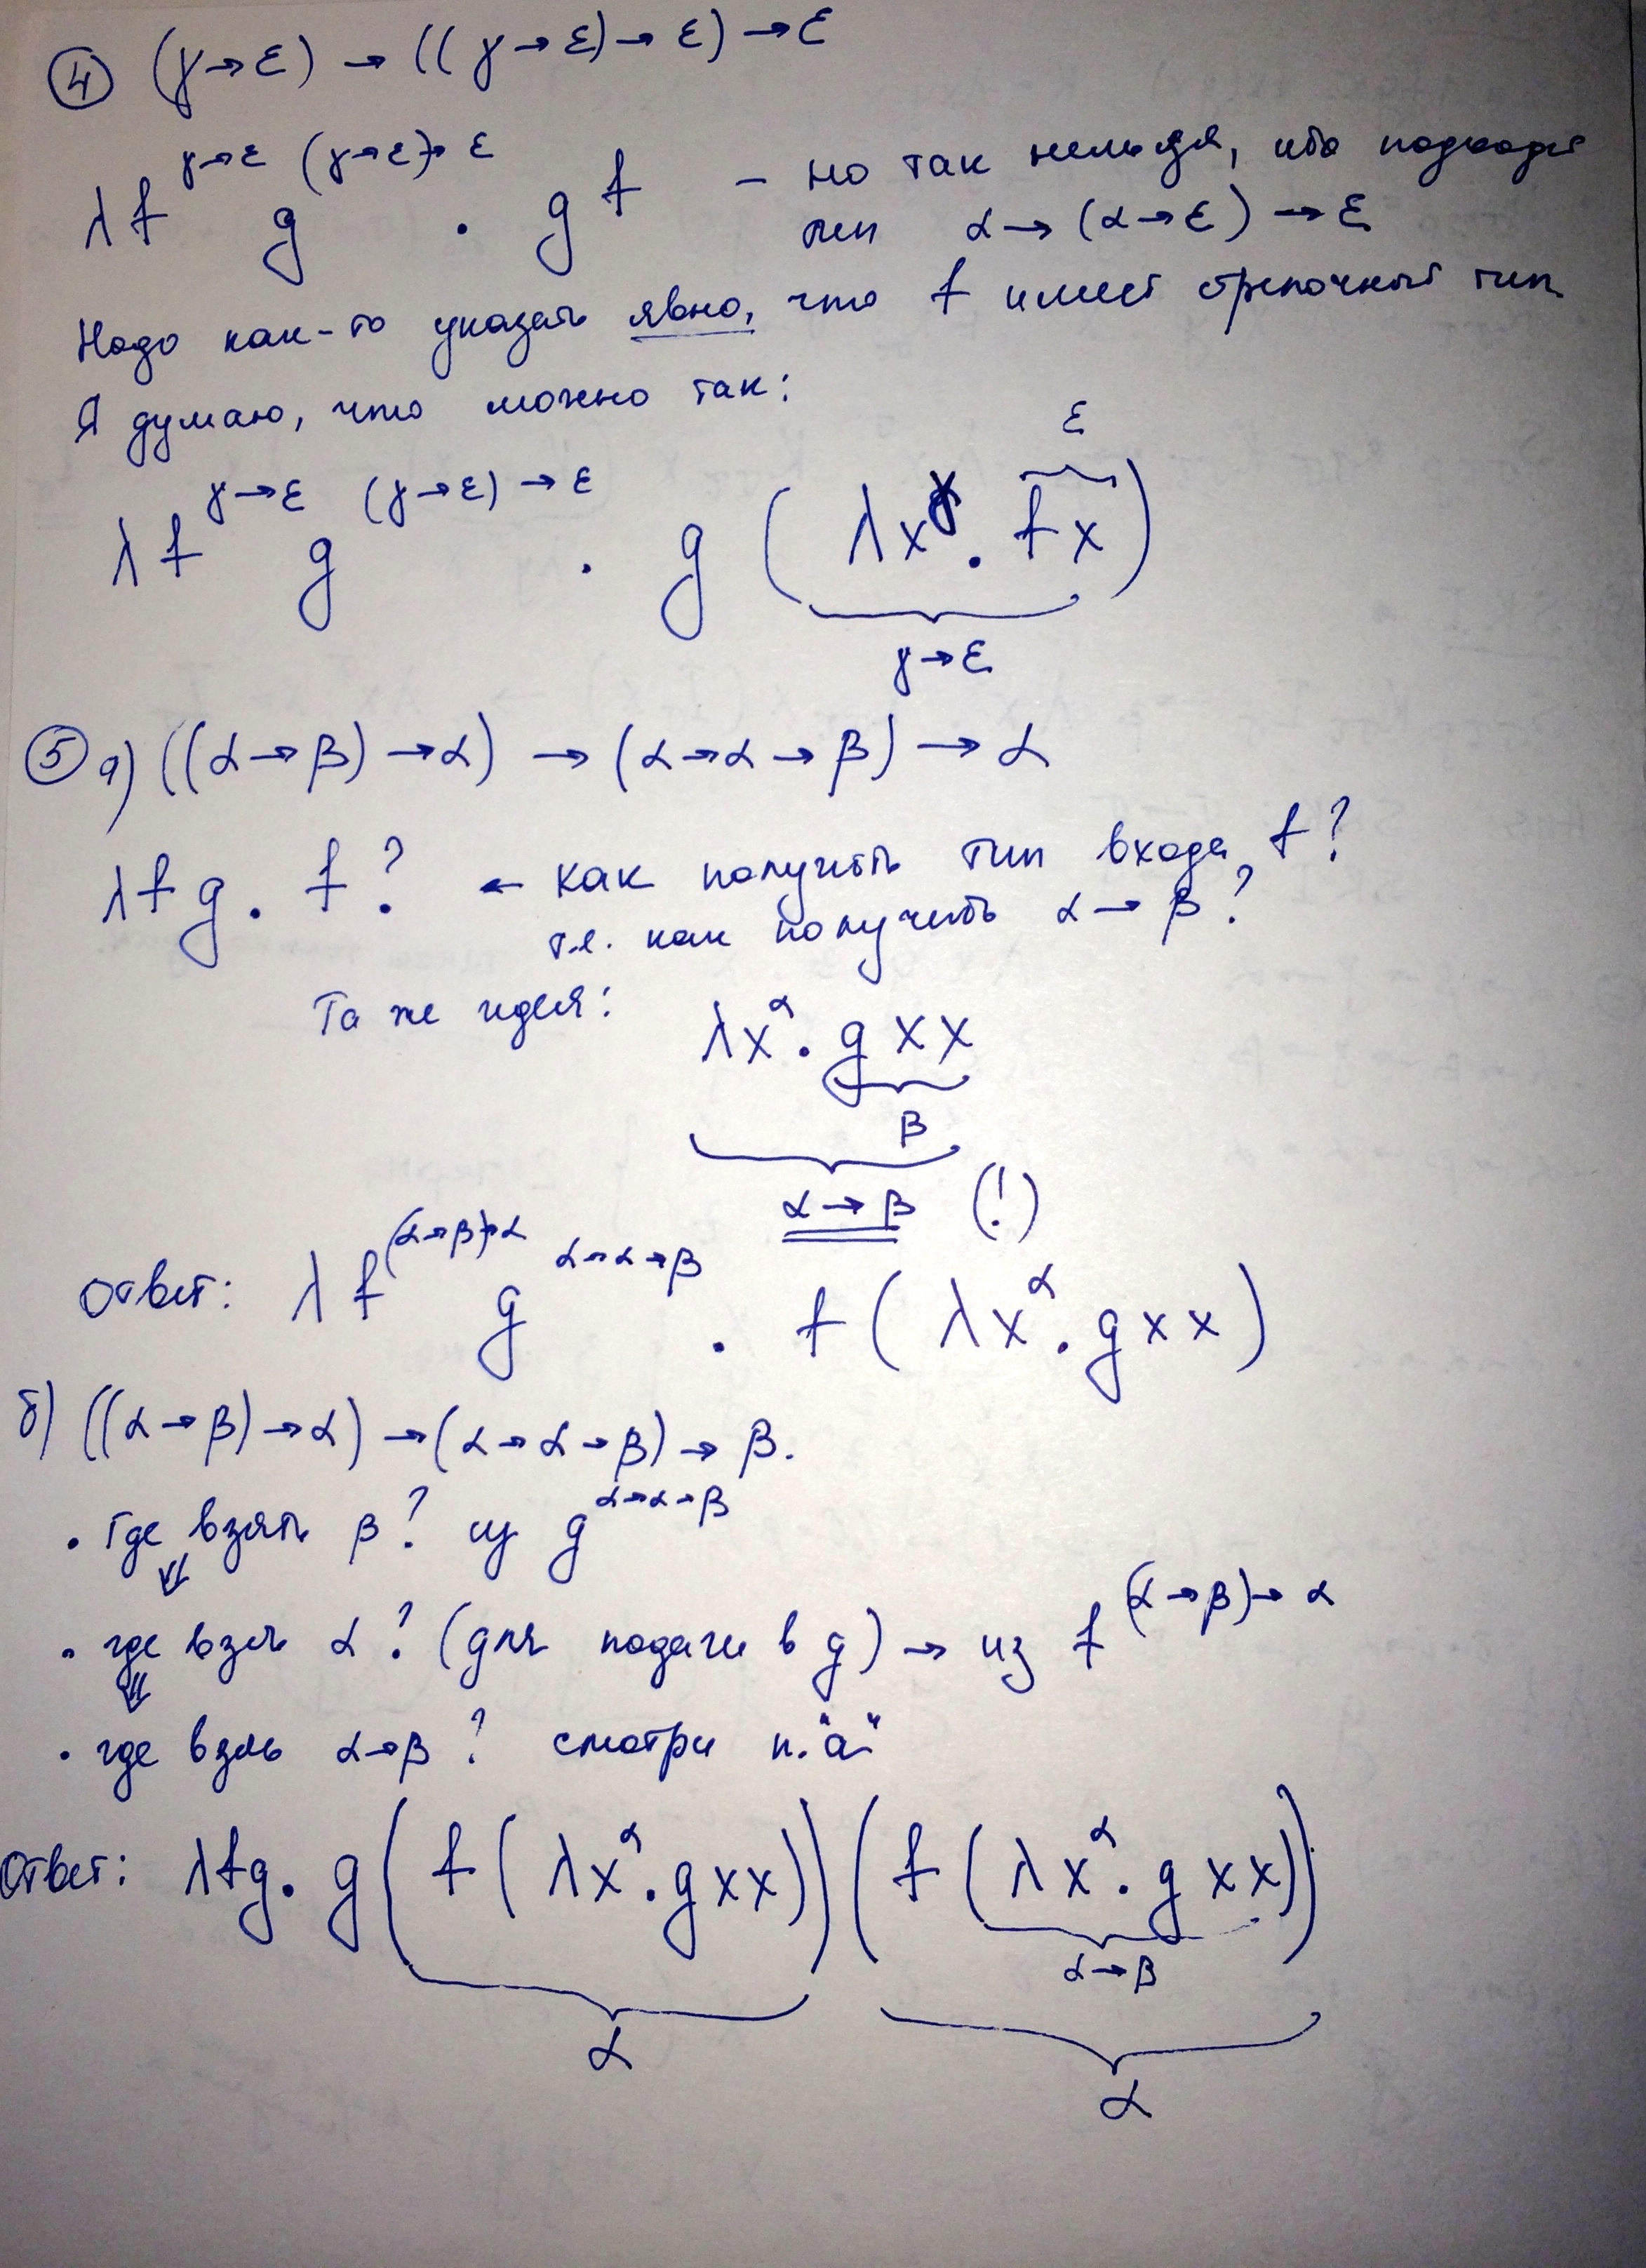 ④ (γ→ε) → ((γ→ε)→ε) →ε
λf^{γ→ε} g^{(γ→ε)→ε} . g f – но так нельзя, ибо подходит
тип α→(α→ε)→ε
Надо как-то указать явно, что f имеет стрелочный тип.
Я думаю, что можно так:
ε
λf^{γ→ε} g^{(γ→ε)→ε} . g (λx^γ. f x)
γ→ε
⑤ а) ((α→β)→α) → (α→α→β) → α
λf g. f ? ← как получить тип входа f?
т.е. как получить α→β?
Та же идея: λx^α. g x x
β
α→β (!)
Ответ: λf^{(α→β)→α} g^{α→α→β} . f (λx^α. g x x)
б) ((α→β)→α) →(α→α→β)→ β.
• Где взять β? из g^{α→α→β}
⇓
• где взять α? (для подачи в g) → из f^{(α→β)→α}
⇓
• где взять α→β ? смотри п."а"
Ответ: λfg. g (f (λx^α. g x x)) (f (λx^α. g x x))
α→β
α α